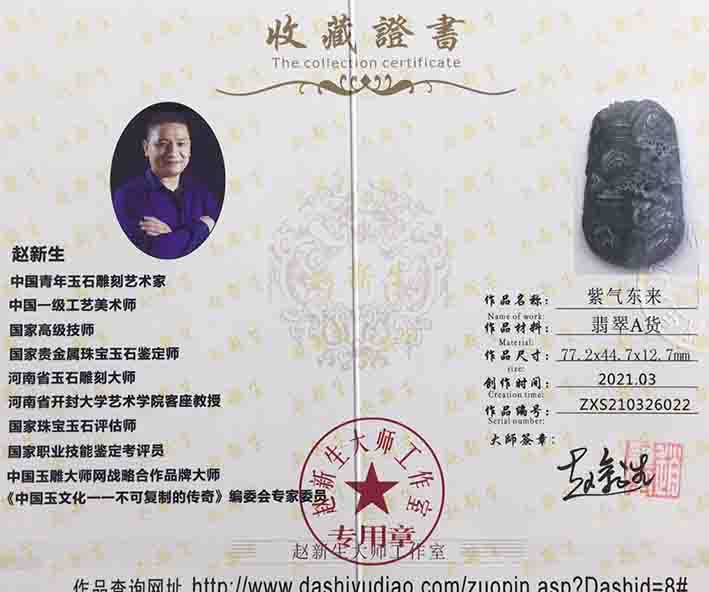 收藏證書
The collection certificate
赵新生
中国青年玉石雕刻艺术家
中国一级工艺美术师
国家高级技师
国家贵金属珠宝玉石鉴定师
河南省玉石雕刻大师
河南省开封大学艺术学院客座教授
国家珠宝玉石评估师
国家职业技能鉴定考评员
中国玉雕大师网战略合作品牌大师
《中国玉文化一一不可复制的传奇》编委会专家委员
作品名称: 紫气东来
Name of work:
作品材料: 翡翠A货
Material:
作品尺寸: 77.2x44.7x12.7mm
size:
创作时间: 2021.03
Creation time:
作品编号: ZXS210326022
Serial number:
大师签章:
赵新生
赵新生大师工作室
专用章
赵新生大师工作室
作品查询网址 http://www.dashiyudiao.com/zuopin.asp?Dashid=8#